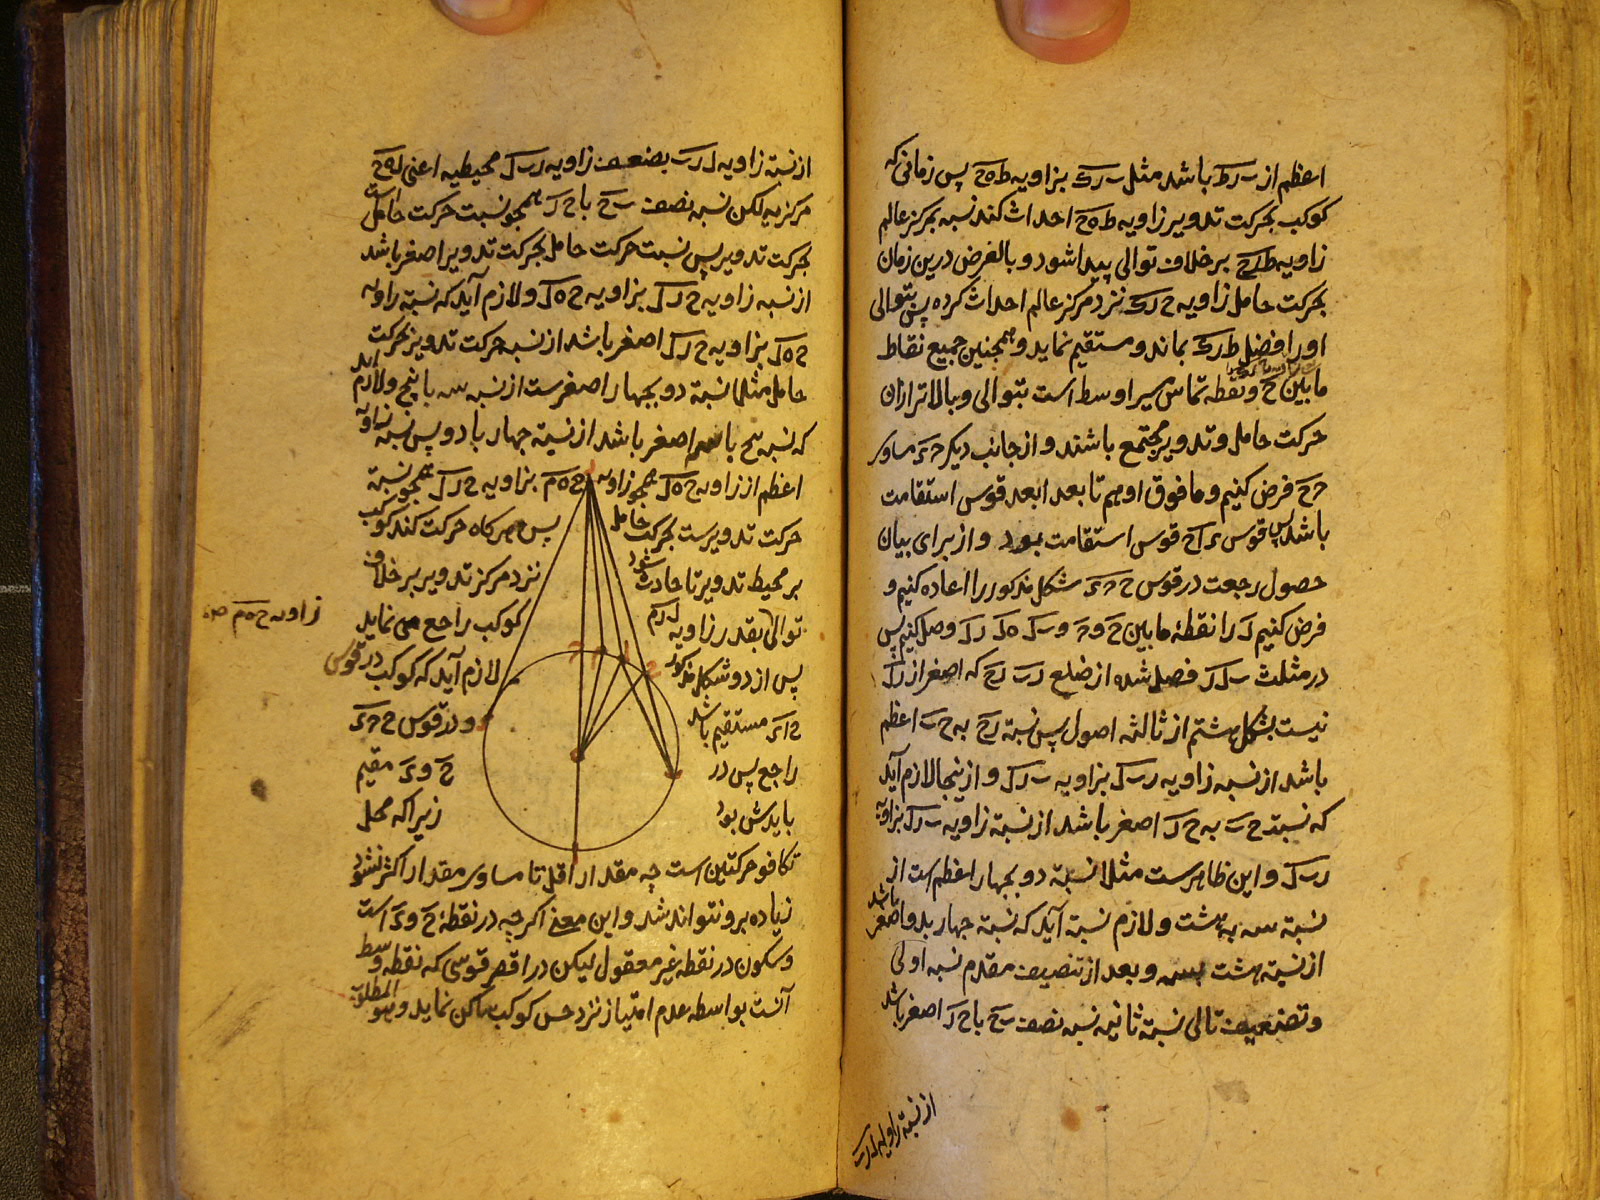 اعظم از ب ر ط باشد مثل ب ر ک بزاویه ط ه ح پس زمانی که
کوکب بحرکت تدویر زاویه ط ه ح احداث کند نسبه بمرکز عالم
زاویه ط ر ح بر خلاف توالی پیدا شود و بالفرض درین زمان
بحرکت حامل زاویه ح ر ک نزد مرکز عالم احداث کرده پس بتوالی
او را فضل ط ر ک بماند و مستقیم نماید و همچنین جمیع نقاط
مابین ح و نقطه تماس سیر اوسط است بتوالی و بالاتر ازان
حرکت حامل و تدویر مجتمع باشند و از جانب دیکر مساوی
فرض کنیم و مافوق او هم تا بعد ابعد قوس استقامت
باشد پس قوس قوس استقامت بود و از برای بیان
حصول رجعت در قوس شکل مذکور را اعاده کنیم و
فرض کنیم ل را نقطهٔ مابین ح و و ب ل ه ل ر ل وصل کنیم پس
در مثلث ب ل ر فصل شده از ضلع ر ب ر ح که اصغر از ر ل
نیست بشکل هشتم از ثالثه اصول پس نسبة ر ح به ح ب اعظم
باشد از نسبه زاویه ر ب ل بزاویه ب ر ل و ازینجا لازم آید
که نسبت ح ب به ح ر اصغر باشد از نسبة زاویه ب ر ل بزاویه
ر ب ل و این ظاهرست مثلا نسبة دو بچهار اعظم است از
نسبة سه به هشت و لازم نسبة آید که نسبة چهار بدو اصغر باشد
از نسبة هشت بسه و بعد از تنصیف مقدم نسبه اولی
و تضعیف تالی نسبة ثانیه نسبه نصف ب ح با ح ر اصغر باشد
از نسبة زاویه ل ر ب
از نسبة زاویه ل ر ب بضعف زاویه ر ب ل محیطیه اعنی ل ه ح
مرکزیه لکن نسبه نصف ب ح با ح ر همچو نسبت حرکت حامل است
بحرکت تدویر پس نسبت حرکت حامل بحرکت تدویر اصغر باشد
از نسبه زاویه ح ر ل بزاویه ح ه ل و لازم آید که نسبة زاویه
ح ه ل بزاویه ح ر ل اصغر باشد از نسبه حرکت تدویر بحرکت
حامل مثلا نسبة دو بچهار اصغرست از نسبه سه با پنج و لازم آید
که نسبه پنج با سه اصغر باشد از نسبة چهار با دو پس نسبه زاویه
اعظم از زاویه ح ه ل همچو زاویه ح ه م بزاویه ح ر ل همچو نسبة
حرکت تدویرست بحرکت حامل پس هرکاه حرکت کند کوکب
بر محیط تدویر تا حادث شود نزد مرکز تدویر بر خلاف
توالی بقدر زاویه ل ر م کوکب راجع می نماید
زاویه ح ه م
پس از دو شکل مذکور لازم آید که کوکب در قوس
مستقیم باشد و در قوس
راجع پس در مقیم
بایدش بود زیرا که محل
تکافو حرکتین است چه مقدار اقل تا مساوی مقدار اکثر نشود
زیاده برو نتواند شد و این معنی اکرچه در نقطهٔ است
و سکون در نقطه غیر معقول لیکن در اقصر قوسی که نقطه وسط
آنست بواسطه عدم امتیاز نزد حس کوکب ساکن نماید و هو المطلوب